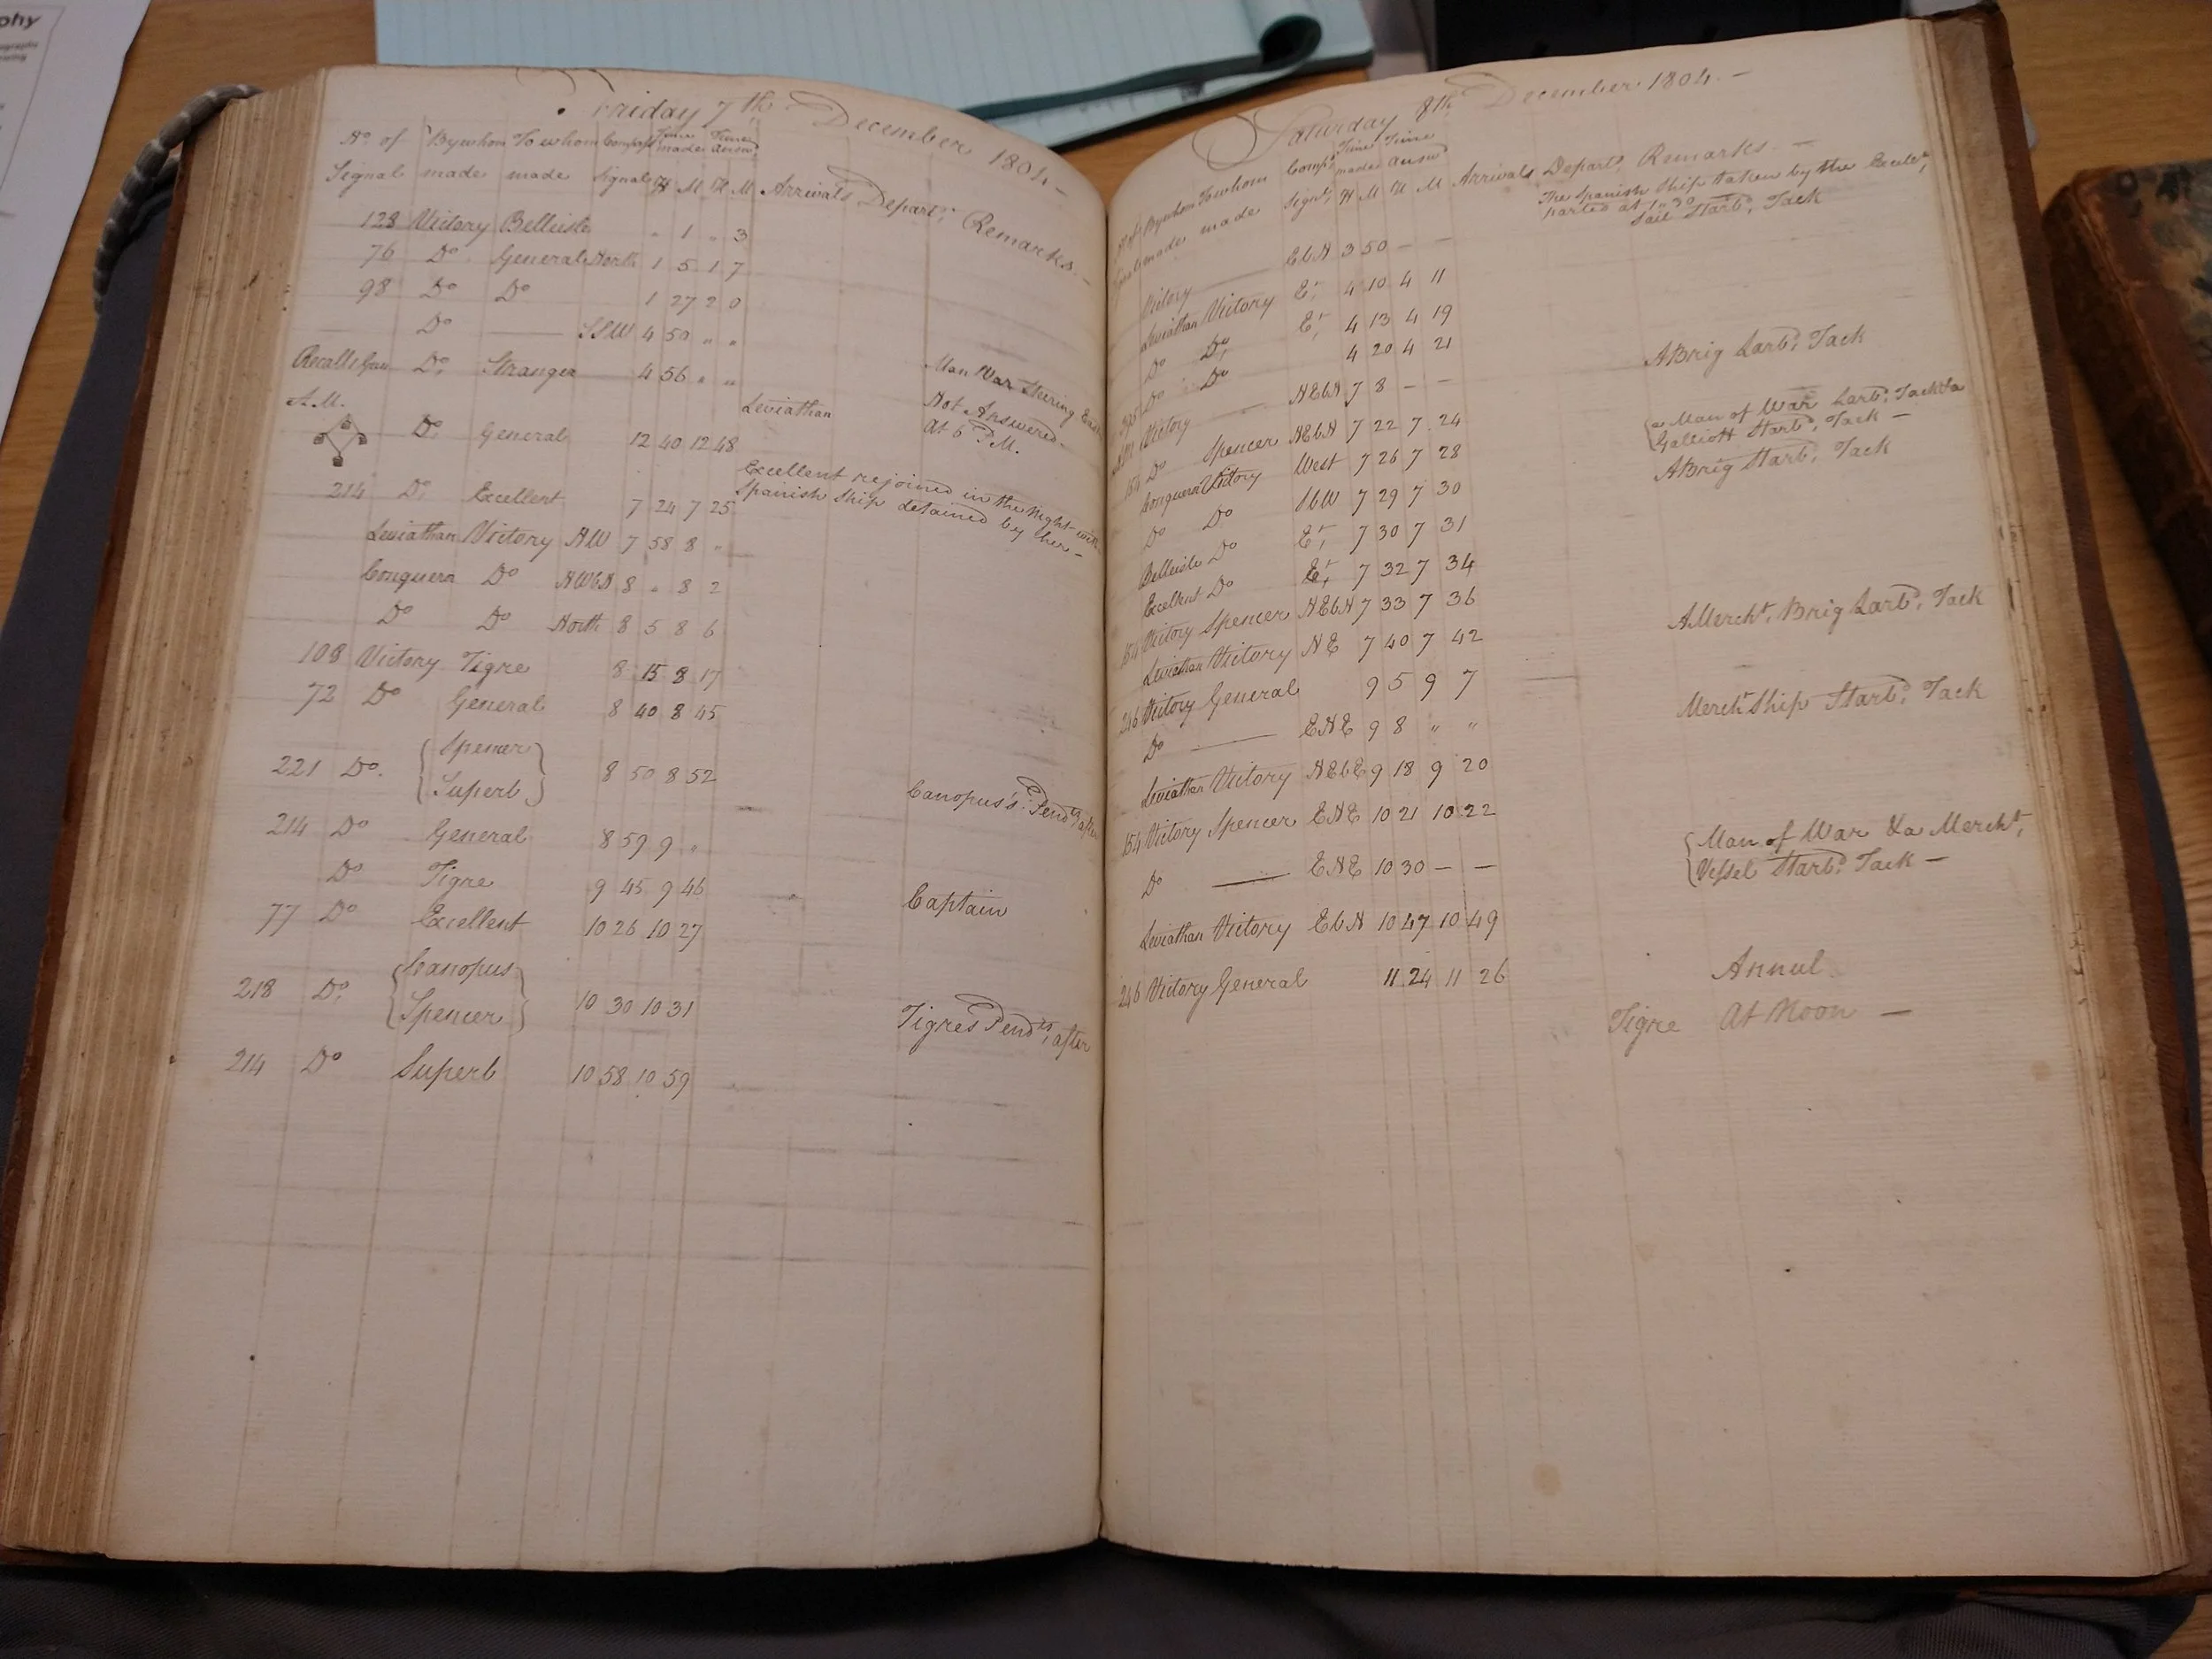 phy
Friday 7th December 1804 —
No. of By whom To whom Compass Time Time
made answd
Signal made made Signal H M H M Arrivals Depart. Remarks. —
128 Victory Belleisle " 1 " 3
76 Do. General North 1 5 1 7
98 Do Do 1 27 2 0
Do — SSW 4 50 " "
Man War Steering East
Recall & Gun Do. Stranger 4 56 " " Not Answered —
Leviathan At 6 P.M.
A.M.
Do. General 12 40 12 48
Excellent rejoined in the Night with
214 Do. Excellent 7 24 7 25 Spanish Ship detained by her —
Leviathan Victory NW 7 58 8 "
Conqueror Do NWbN 8 " 8 2
Do Do North 8 5 8 6
108 Victory Tigre 8 15 8 17
72 Do General 8 40 8 45
221 Do. { Spencer
Superb } 8 50 8 52 Canopus's Pendts after
214 Do General 8 59 9 "
Do Tigre 9 45 9 46 Captain
77 Do Excellent 10 26 10 27
218 Do. { Canopus
Spencer } 10 30 10 31 Tigres Pendts, after
214 Do Superb 10 58 10 59
Saturday 8th December 1804. —
By whom To whom Comps Time Time
made answd
made made Signl. H M H M Arrivals Depart. Remarks. —
The Spanish Ship taken by the
parted at 1" 30
Victory — EbN 3 50 — — Sail Starbd. Tack
Leviathan Victory Et. 4 10 4 11
Do Do. Et. 4 13 4 19
Do Do 4 20 4 21
Victory — NEbN 7 8 — — A Brig Larbd. Tack
154 Do Spencer NEbN 7 22 7 24
Conqueror Victory West 7 26 7 28 { a Man of War Larbd. Tack & a
Galliott Starbd. Tack —
Do Do SbW 7 29 7 30 A Brig Starbd. Tack
Belleisle Do Et. 7 30 7 31
Excellent Do Et. 7 32 7 34
154 Victory Spencer NEbN 7 33 7 36
Leviathan Victory NE 7 40 7 42 A Mercht. Brig Larbd. Tack
246 Victory General 9 5 9 7
Do — ENE 9 8 " " Mercht Ship Starbd. Tack
Leviathan Victory NEbE 9 18 9 20
154 Victory Spencer ENE 10 21 10 22
Do — ENE 10 30 — — { Man of War & a Mercht.
Vessel Starbd. Tack —
Leviathan Victory EbN 10 47 10 49
246 Victory General 11 24 11 26 Annul
Tigre At Noon —